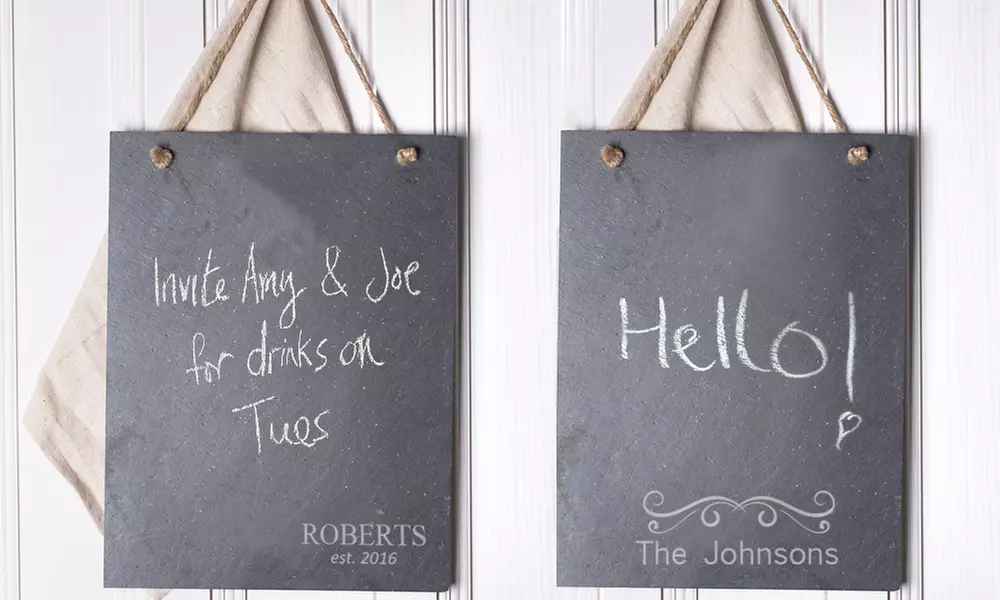 Invite Amy & Joe
for drinks on
Tues
ROBERTS
est. 2016
Hello!
The Johnsons